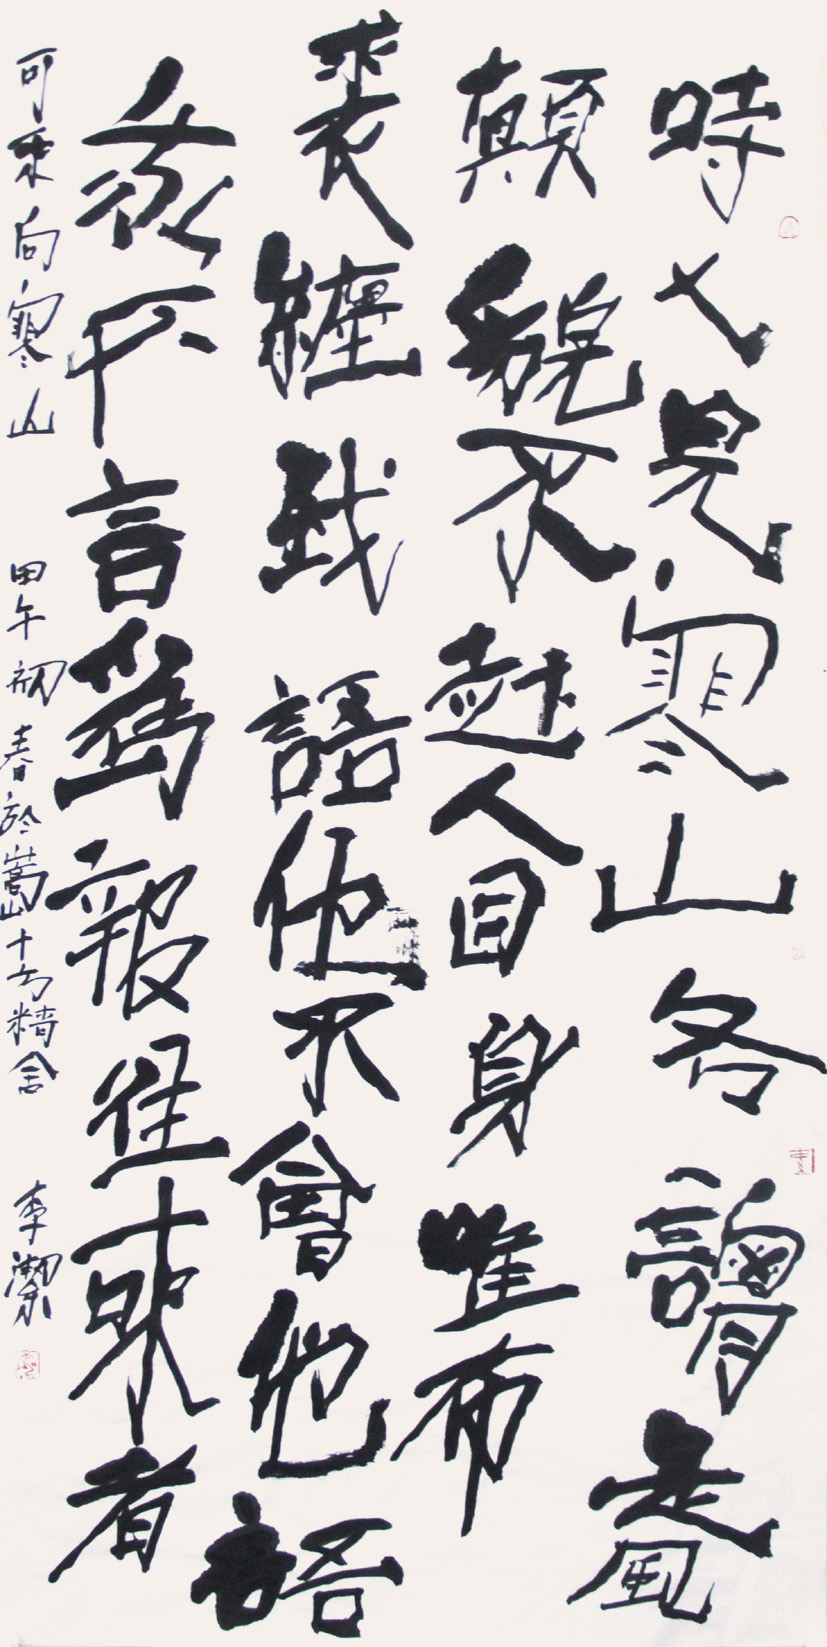 時人見寒山各謂是風
顛貌不起人目身唯布
裘纏我語他不會他語
我不言為報往來者
可来向寒山 甲午初春於嵩山十方精舍 李潔